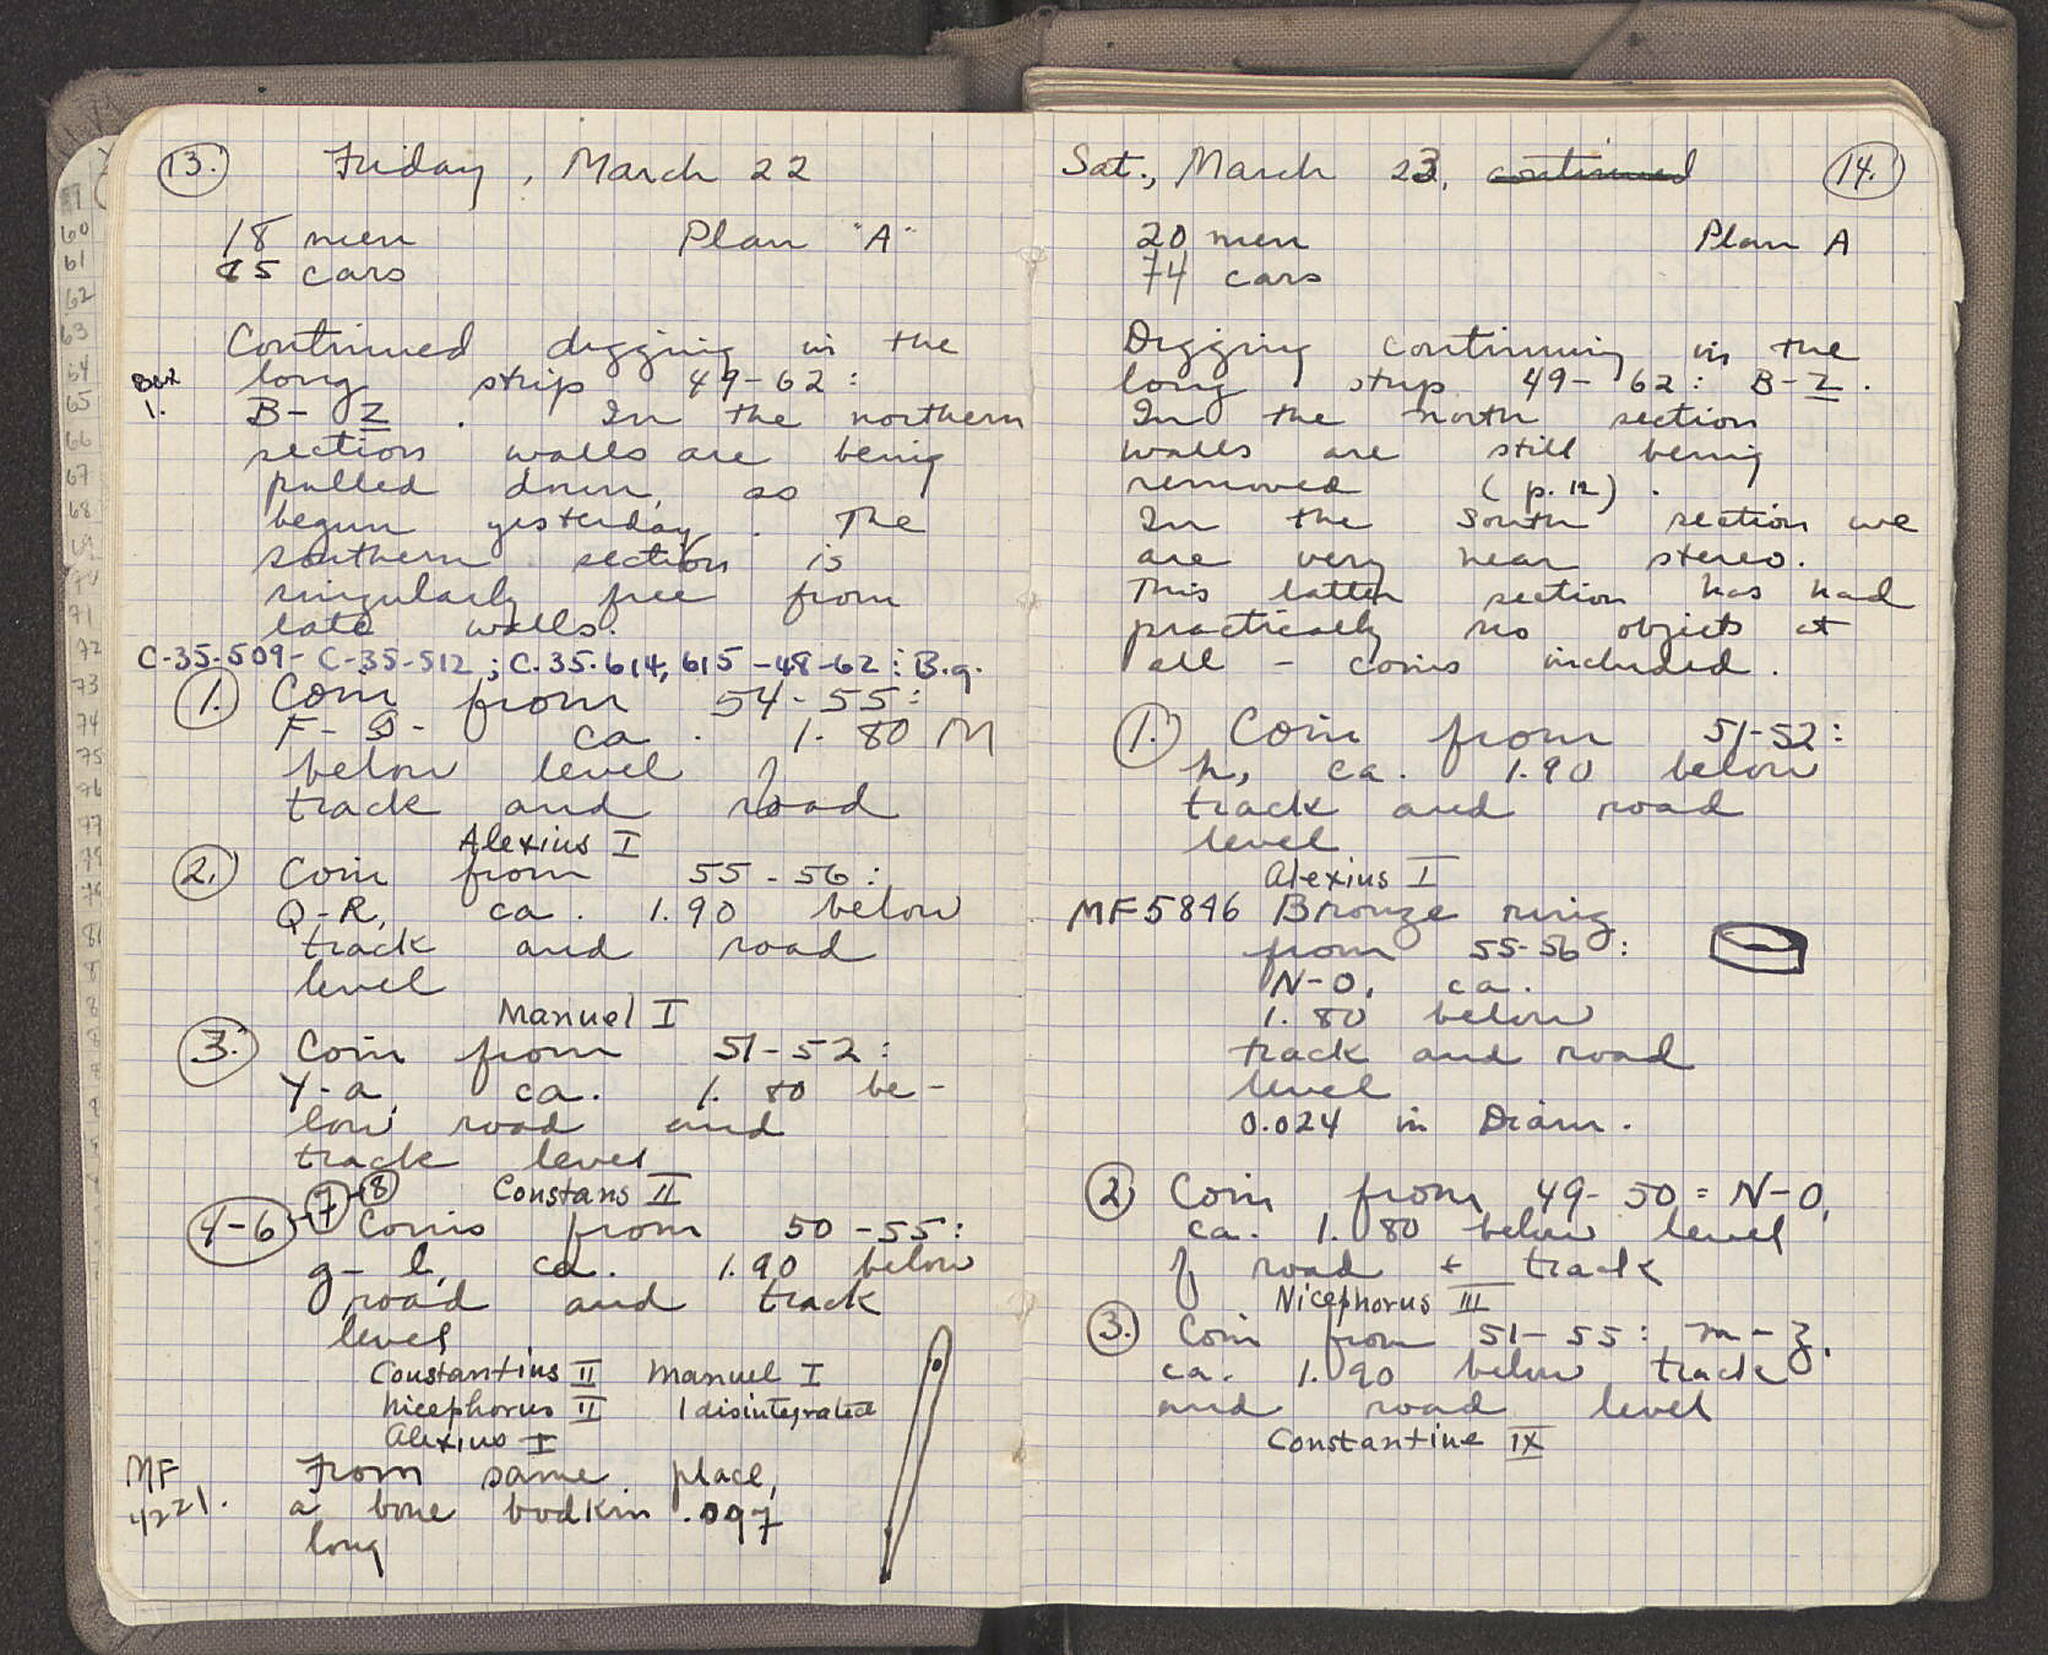 13. Friday, March 22
18 men Plan "A"
65 cars
Continued digging in the
long strip 49-62:
Box
1.
B-Z. In the northern
section walls are being
pulled down, as
begun yesterday. The
southern section is
singularly free from
late walls.
C-35-509-C-35-512; C.35.614, 615-48-62: B.g.
1. Coin from 54-55:
F- ca. 1.80 M
below level of
track and road
Alexius I
2. Coin from 55-56:
Q-R, ca. 1.90 below
track and road
level
Manuel I
3. Coin from 51-52:
Y-a, ca. 1.80 be-
low road and
track level
Constans II
4-6-7-8 Coins from 50-55:
g-l, ca. 1.90 below
road and track
level
Constantius II Manuel I
Nicephorus II 1 disintegrated
Alexius I
MF
4221.
From same place,
a bone bodkin .097
long
Sat., March 23, continued 14.
20 men Plan A
74 cars
Digging continuing in the
long strip 49-62: B-Z.
In the north section
walls are still being
removed (p. 12).
In the south section we
are very near stereo.
This latter section has had
practically no objects at
all - coins included.
1. Coin from 51-52:
h, ca. 1.90 below
track and road
level
Alexius I
MF5846 Bronze ring
from 55-56:
N-O, ca.
1.80 below
track and road
level
0.024 in Diam.
2 Coin from 49-50: N-O,
ca. 1.80 below level
of road + track
Nicephorus III
3. Coin from 51-55: m-z,
ca. 1.90 below track
and road level
Constantine IX